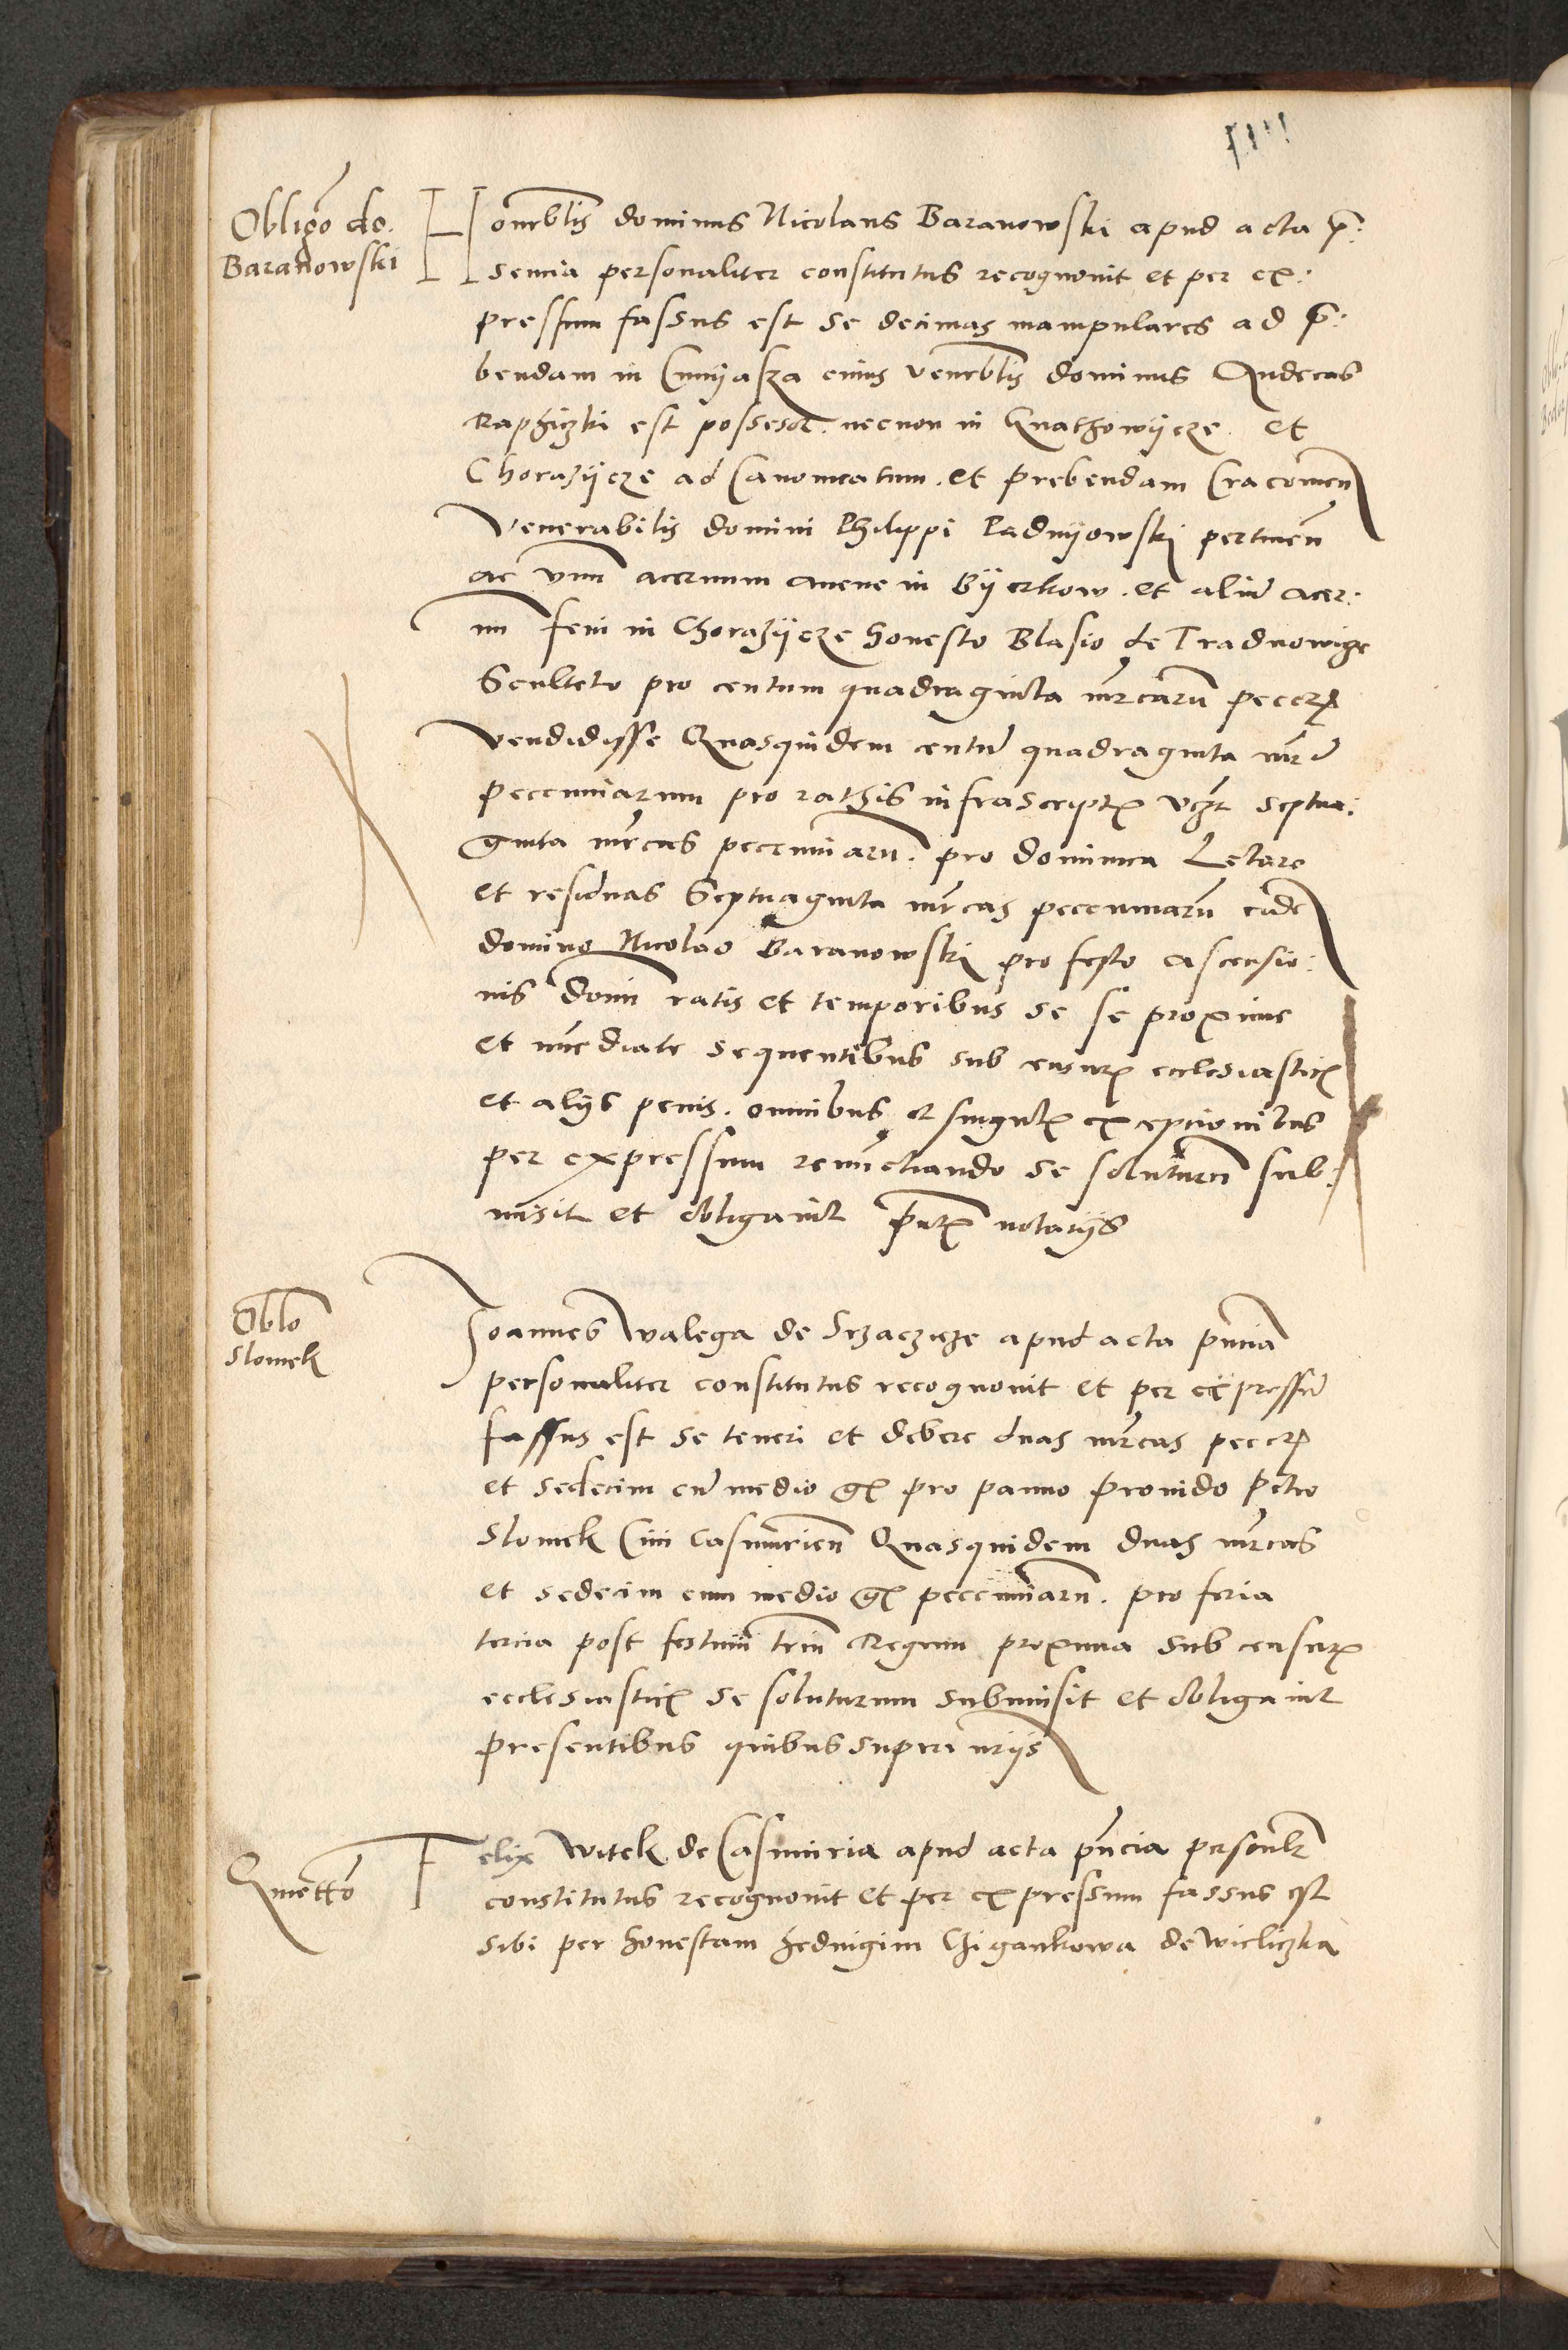 Obligo do.
Baranowski
Honrblis dominus Nicolaus Baranowski apud acta p:
sencia personaliter constitutus recognouit et per ex:
pressum fassus est se decimas manipulares ad p:
bendam in cuius venerblis dominus Andreas
est possessor. necnon in et
Chorazÿcze ad Canonicatum. et prebendam Cracouien
Venerabilis domini Philippi Padnÿowski pertinen
ac vnu aceruum auene in Bÿerkow. et aliu acer:
uu feni in Chorazÿcze honesto Blasio de
Sculteto pro centum quadraginta mrcaru peccar
vendidisse Quasquidem centu quadraginta mrc
peccuniarum pro rathis infrascript vczt septua:
ginta mrcas peccuniaru. pro dominica Letare
et residuas Septuaginta mrcas peccuniaru eide
domino Nicolao Baranowski pro festo ascensio:
nis domi ratis et temporibus se se proxime
et imediate sequentibus sub censur ecclesiastic
et alijs penis. omnibus et singul excepcionibus
per expressum renuncciando se soluturu sub:
misit et obligauit pntb notarijs
Oblo
Slomek
Joannes Walega de apud acta pncia
personaliter constitutus recognouit et per expressu
fassus est se teneri et debere duas mrcas peccar
et sedecim cu medio gr pro panno prouido Petro
Slomek Ciui Casimirien Quasquidem duas mrcas
et sedecim cum medio gr peccuniaru. pro feria
tercia post festum triu Regum proxima sub censur
ecclesiastic se soluturum submisit et obligauit
presentibus quibus supra nrijs
Qmetto
Felix Witek de Casimiria apud acta pncia personlr
constitutus recognouit et per expressum fassus est
sibi per honestam hedwigim Chigankowa de Wieliczka